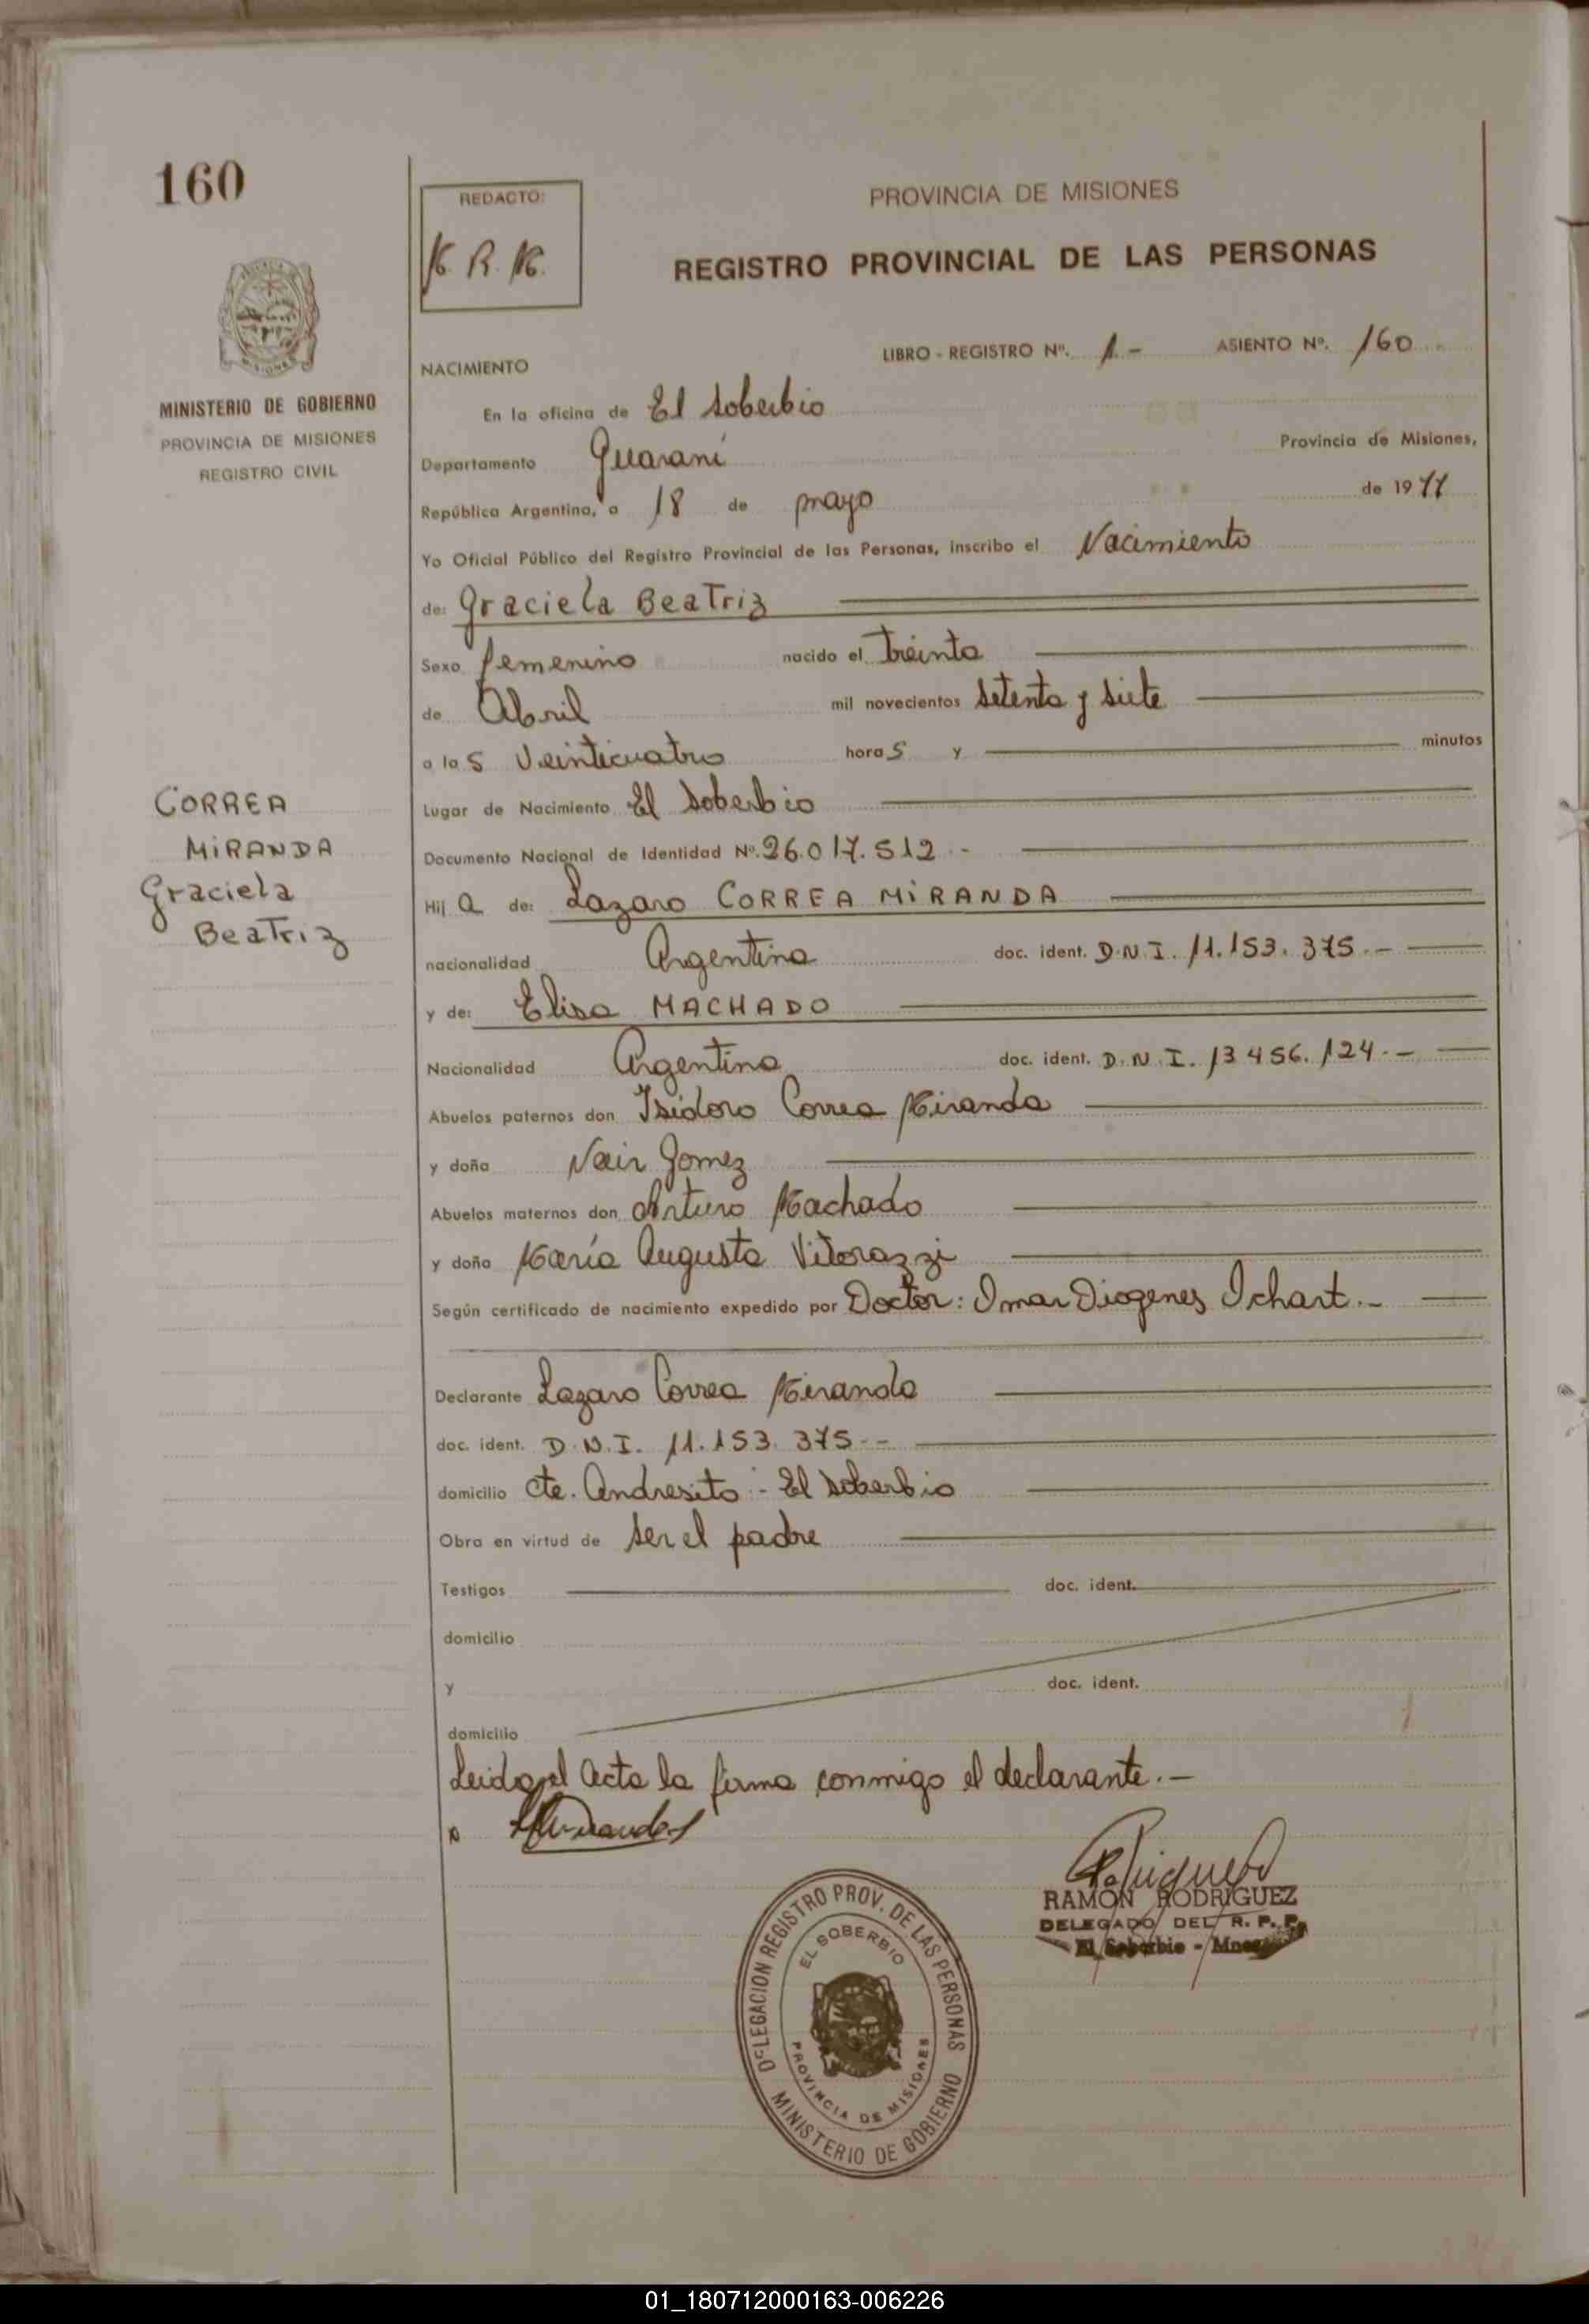 160
REDACTO:
PROVINCIA DE MISIONES
REGISTRO PROVINCIAL DE LAS PERSONAS
LIBRO - REGISTRO Nº. 1.- ASIENTO Nº. 160
MINISTERIO DE GOBIERNO
PROVINCIA DE MISIONES
REGISTRO CIVIL
NACIMIENTO
En la oficina de El Soberbio
Departamento Guaraní Provincia de Misiones,
República Argentina, a 18 de mayo de 1977
Yo Oficial Público del Registro Provincial de las Personas, inscribo el Nacimiento
de: Graciela Beatriz
Sexo femenino nacido el treinta
de Abril mil novecientos setenta y siete
a las Veinticuatro horas y minutos
Lugar de Nacimiento El Soberbio
Documento Nacional de Identidad Nº. 26.017.512.-
CORREA
MIRANDA
Graciela
Beatriz
Hija de: Lazaro CORREA MIRANDA
nacionalidad Argentina doc. ident. D.N.I. 11.153.375.-
y de: Elisa MACHADO
Nacionalidad Argentina doc. ident. D.N.I. 13.456.124.-
Abuelos paternos don Isidoro Correa Miranda
y doña Nair Gomez
Abuelos maternos don Arturo Machado
y doña María Augusta Vitorazzi
Según certificado de nacimiento expedido por Doctor: Omar Diogenes Ichart.-
Declarante Lazaro Correa Miranda
doc. ident. D.N.I. 11.153.375.-
domicilio Cte. Andresito - El Soberbio
Obra en virtud de ser el padre
Testigos doc. ident.
domicilio
y doc. ident.
domicilio
Leida el Acta la firma conmigo el declarante.-
RAMON RODRIGUEZ
DELEGADO DEL R. P. P.
El Soberbio - Mnes
DELEGACION REGISTRO PROV. DE LAS PERSONAS
EL SOBERBIO
PROVINCIA DE MISIONES
MINISTERIO DE GOBIERNO
01_180712000163-006226